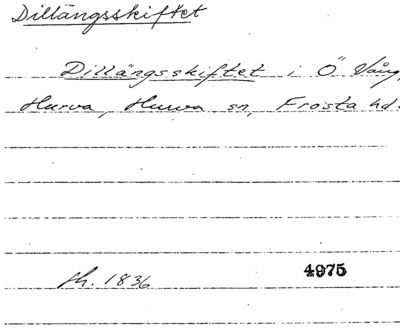 Dillängsskiftet
Dillängsskiftet i Ö. Vång,
Hurva, Hurva sn, Frosta hd.
4975
sh. 1836